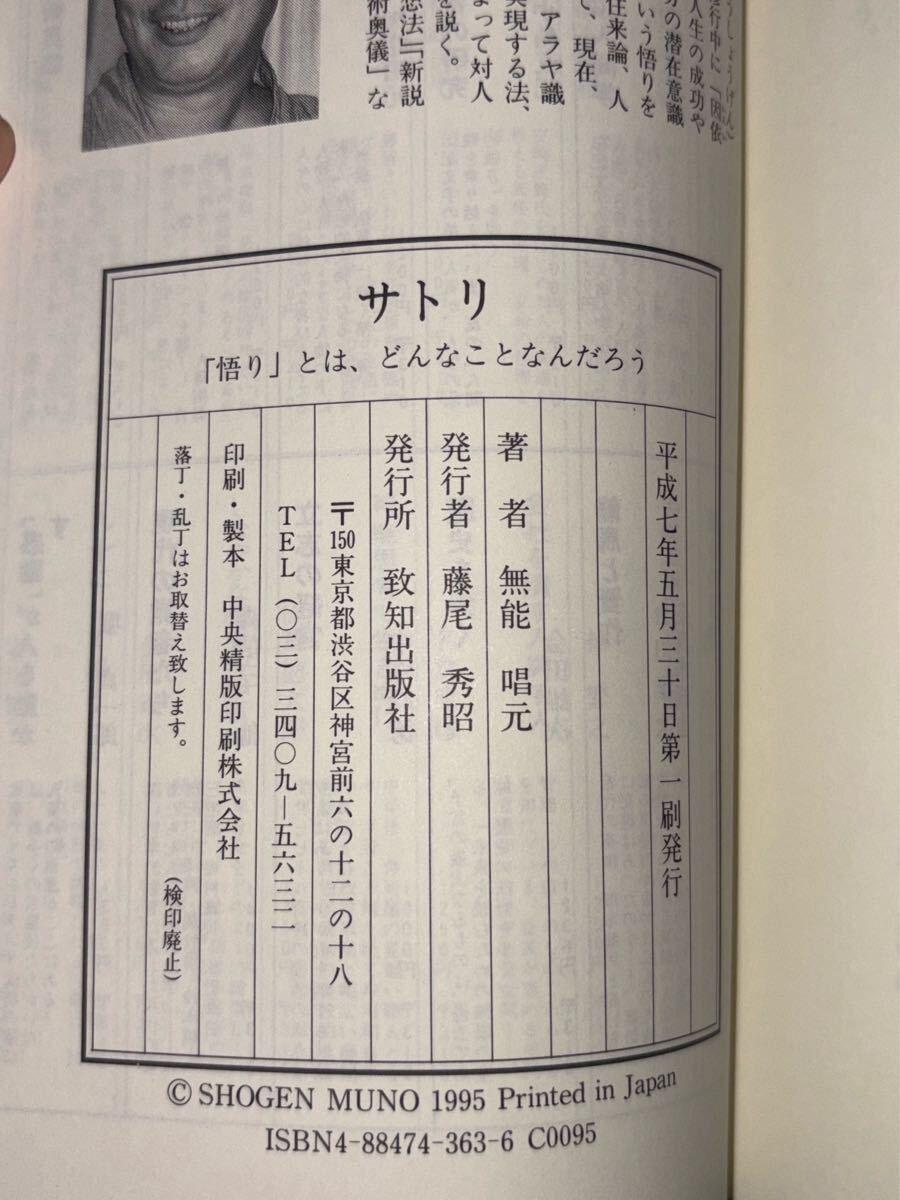 人生の成功や
の潜在意識
いう悟りを
住来論、人
て、現在、
アラヤ識
実現する法、
よって対人
を説く。
想法」「新説
術奥儀」な
サトリ
「悟り」とは、どんなことなんだろう
平成七年五月三十日第一刷発行
著者 無能 唱元
発行者 藤尾 秀昭
発行所 致知出版社
〒150東京都渋谷区神宮前六の十二の十八
TEL(〇三)三四〇九―五六三二
印刷・製本 中央精版印刷株式会社
落丁・乱丁はお取替え致します。
(検印廃止)
© SHOGEN MUNO 1995 Printed in Japan
ISBN4-88474-363-6 C0095